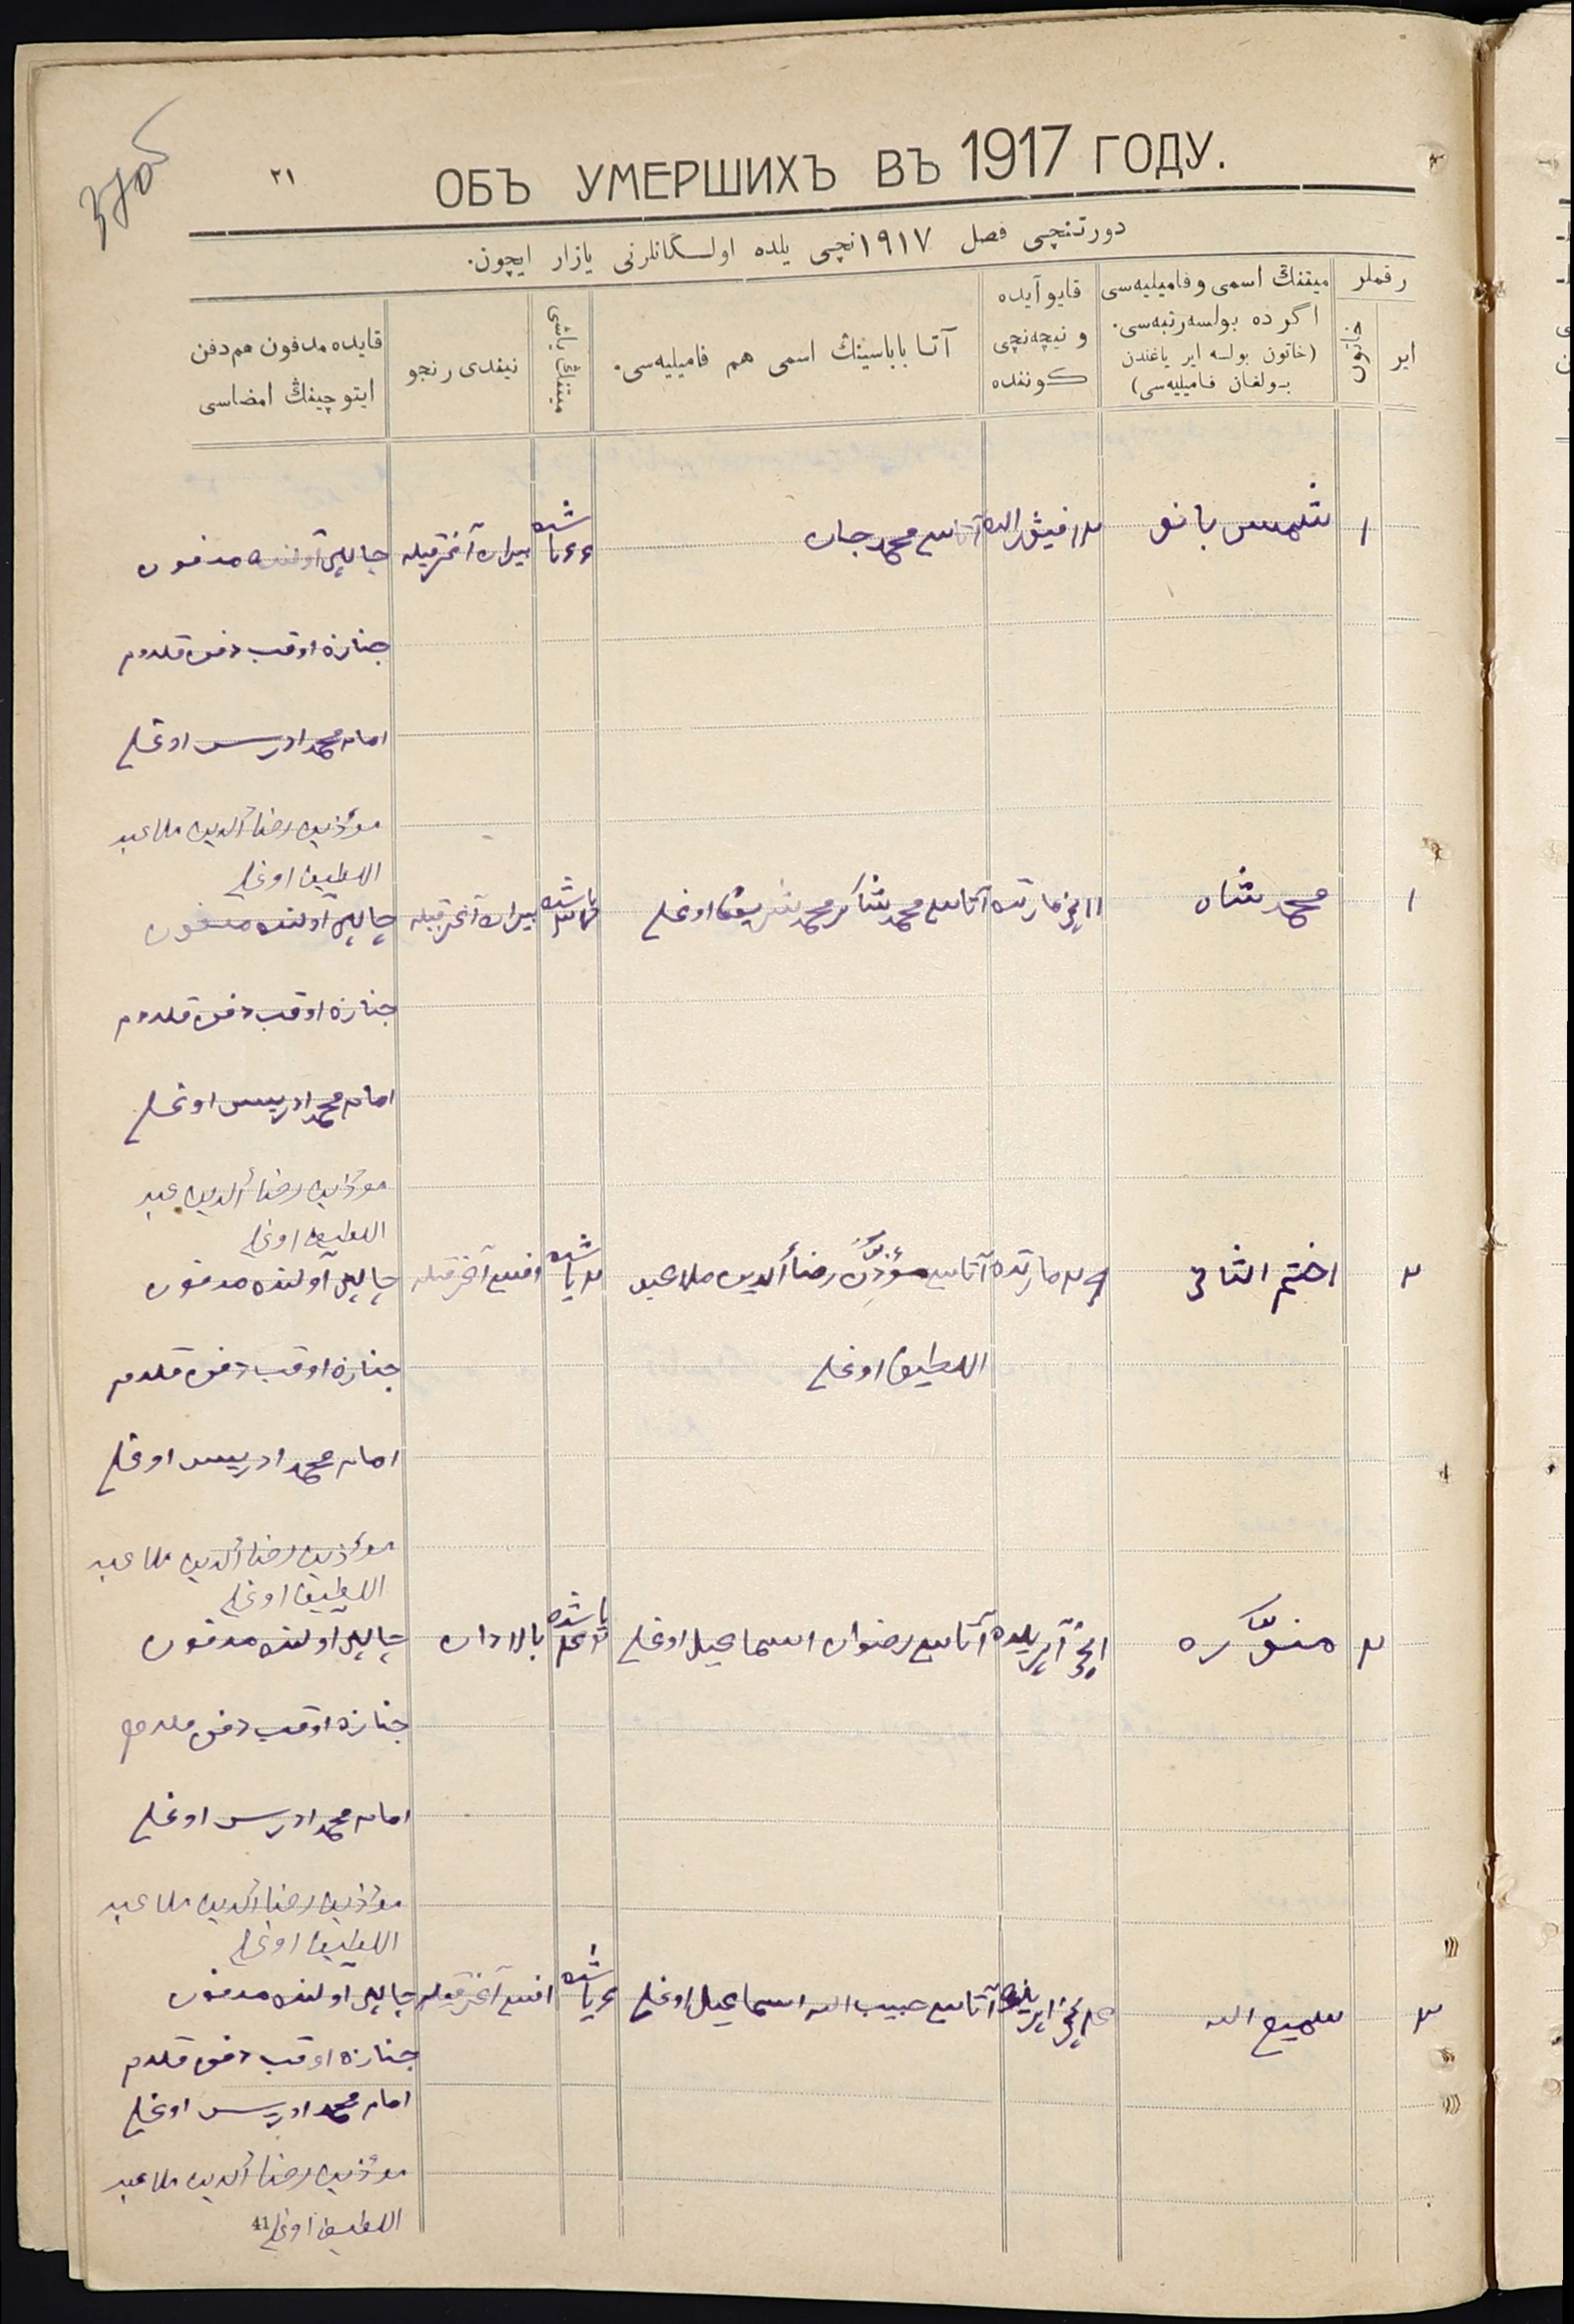 ٢١
ОБЪ УМЕРШИХЪ ВЪ 1917 ГОДУ.
دورتنچی فصل ١٩١٧نچی یلده اولسگانلرنی یازار ایچون.
رقملر
ایر
خاتون
میتنڭ اسمی وفامیلیەسی
اگر ده بولسه رتبەسی.
(خاتون بولسه ایر یاغندن
بولغان فامیلیەسی)
قایو آیده
و نیچەنچی
کوننده
آتا باباسینڭ اسمی هم فامیلیەسی.
میتنڭ یاشی
نیندی رنجو
قایده مدفون هم دفن
ایتوچینڭ امضاسی
١ شمس بانو آتاسی محمدجان آغرقیله چالپی آولنده مدفون
جنازه اوقب دفن قلدم
امام محمد ادریس اوغلی
مؤذین رضاألدین ملا عبد
اللطیف اوغلی
١ محمدشاه ١١نچی مارتده آتاسی محمدشاکر محمدشریف اوغلی آغرقیله چالپی آولنده مدفون
جنازه اوقب دفن قلدم
امام محمد ادریس اوغلی
مؤذین رضاألدین عبد
اللطیف اوغلی
٢ مارتده آتاسی مؤذن رضاألدین ملا عبد یاشده آغرقیله چالپی آولنده مدفون
اللطیف اوغلی جنازه اوقب دفن قلدم
امام محمد ادریس اوغلی
مؤذین رضاألدین ملا عبد
اللطیف اوغلی
٢ منوّره آپریلده آتاسی رضوان اسماعیل اوغلی بالادان چالپی آولنده مدفون
جنازه اوقب دفن قلدم
امام محمد ادریس اوغلی
مؤذین رضاألدین ملا عبد
اللطیف اوغلی
٣ سمیع الله آتاسی حبیب الله اسماعیل اوغلی یاشده آغرقیله چالپی آولنده مدفون
جنازه اوقب دفن قلدم
امام محمد ادریس اوغلی
مؤذین رضاألدین ملا عبد
اللطیف اوغلی
41